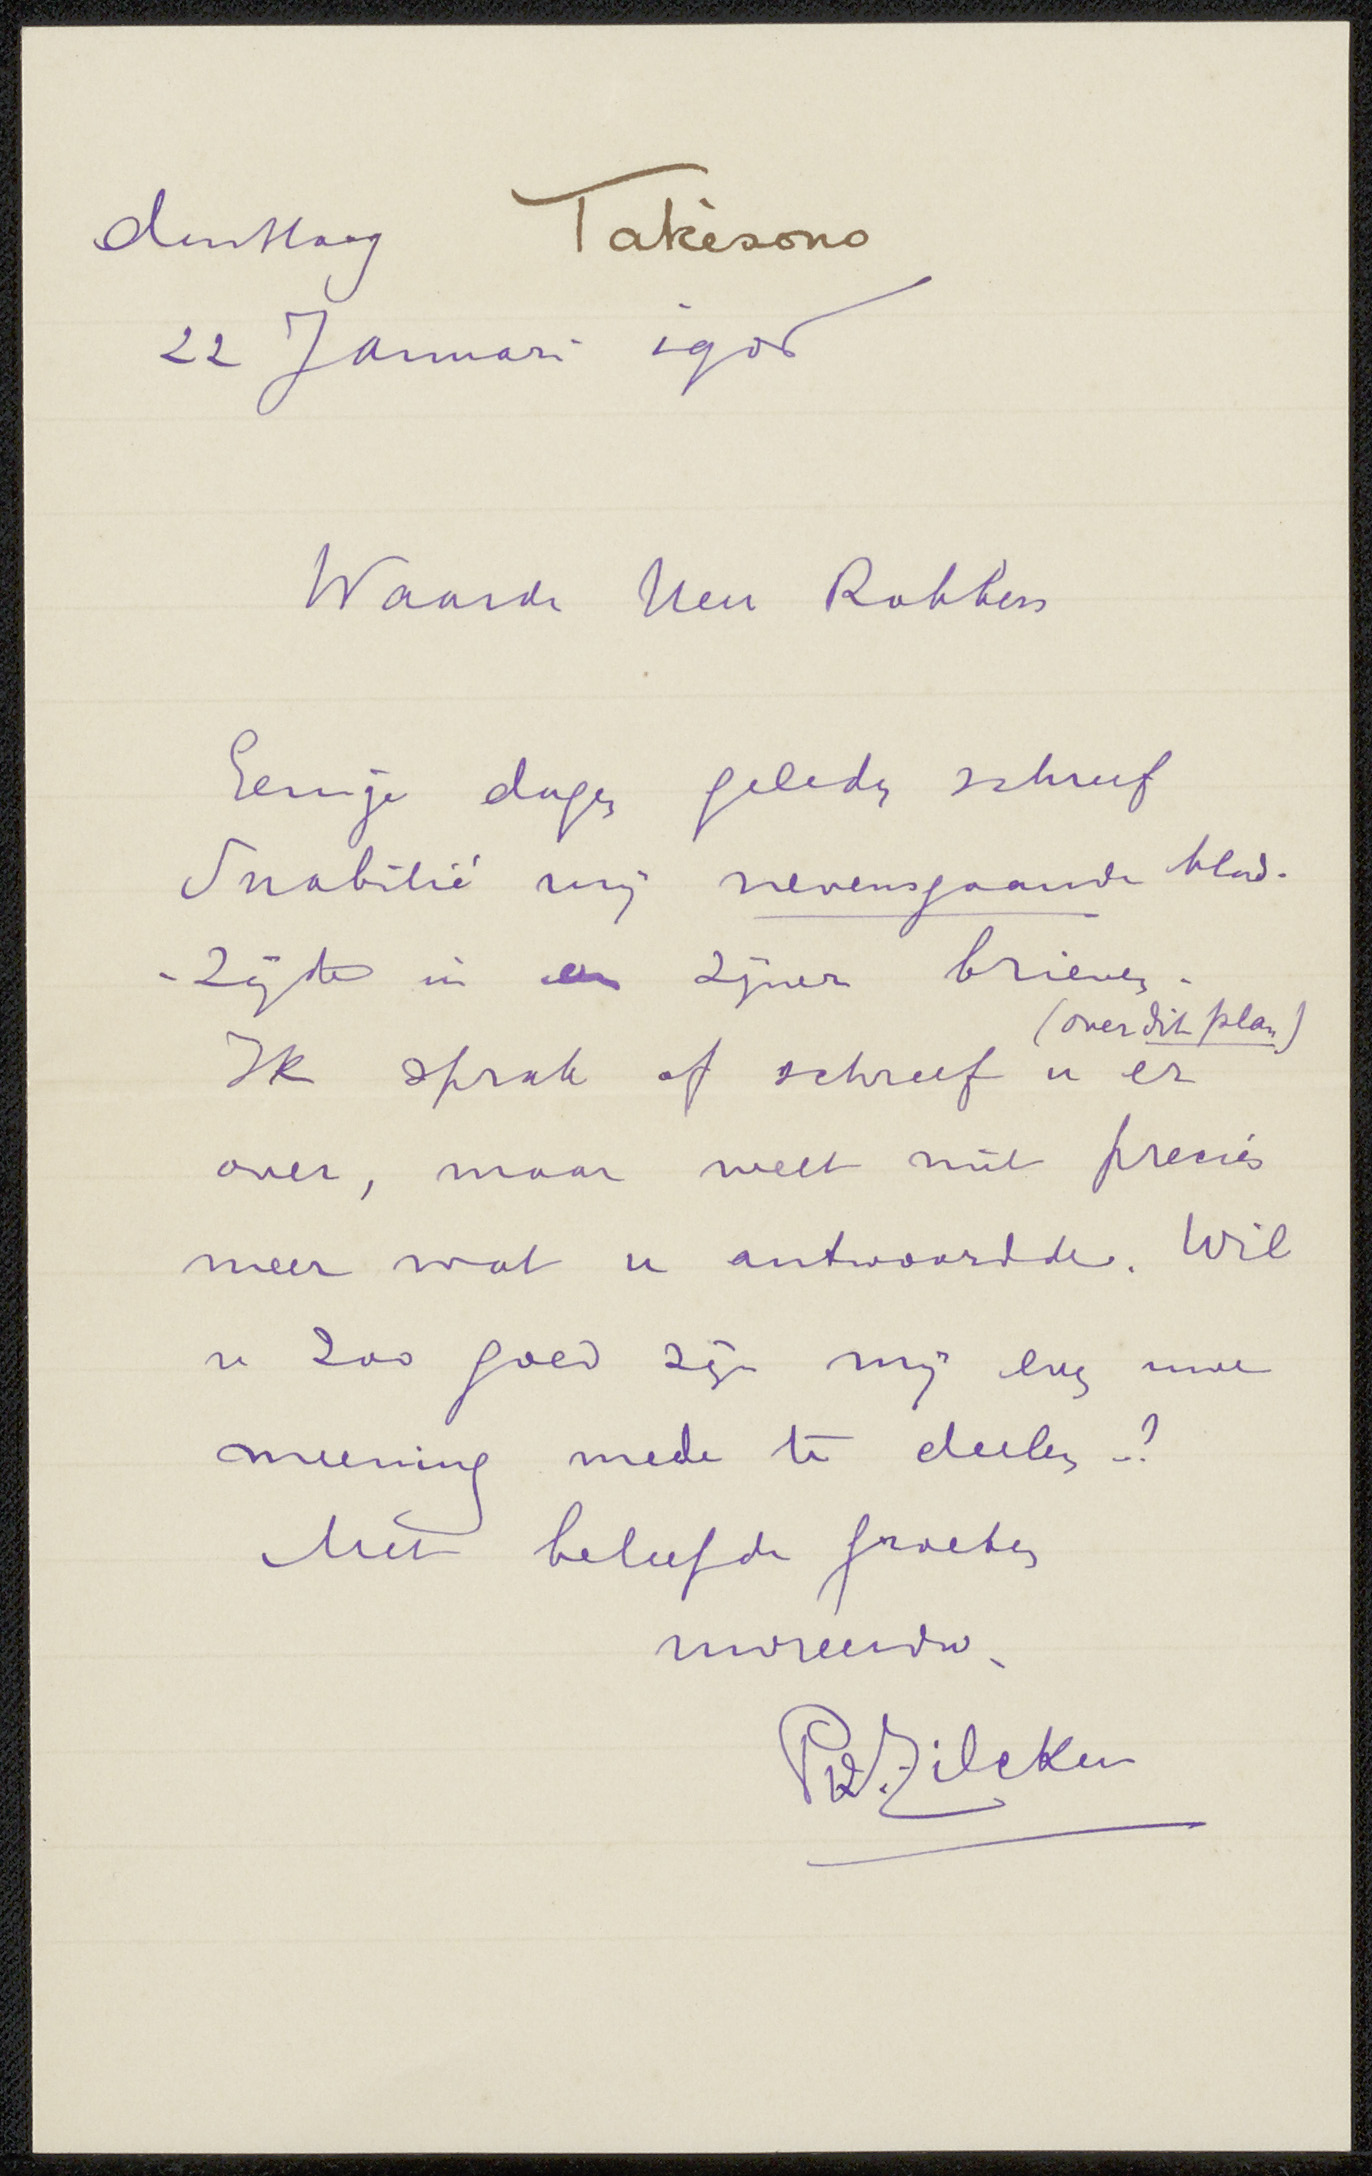 den Haag Takèsono
22 Januari 190
Waarde Heer Robbers
Eenige dagen geleden schreef
Snabilié mij nevensgaande blad-
-zijde in zijner brieven.
(over dit plan)
Ik sprak of schreef u er
over, maar weet niet precies
meer wat u antwoordde. Wil
u zoo goed zijn mij even uwe
meening mede te deelen -?
Met beleefde groeten
uw
Ph. Zilcken